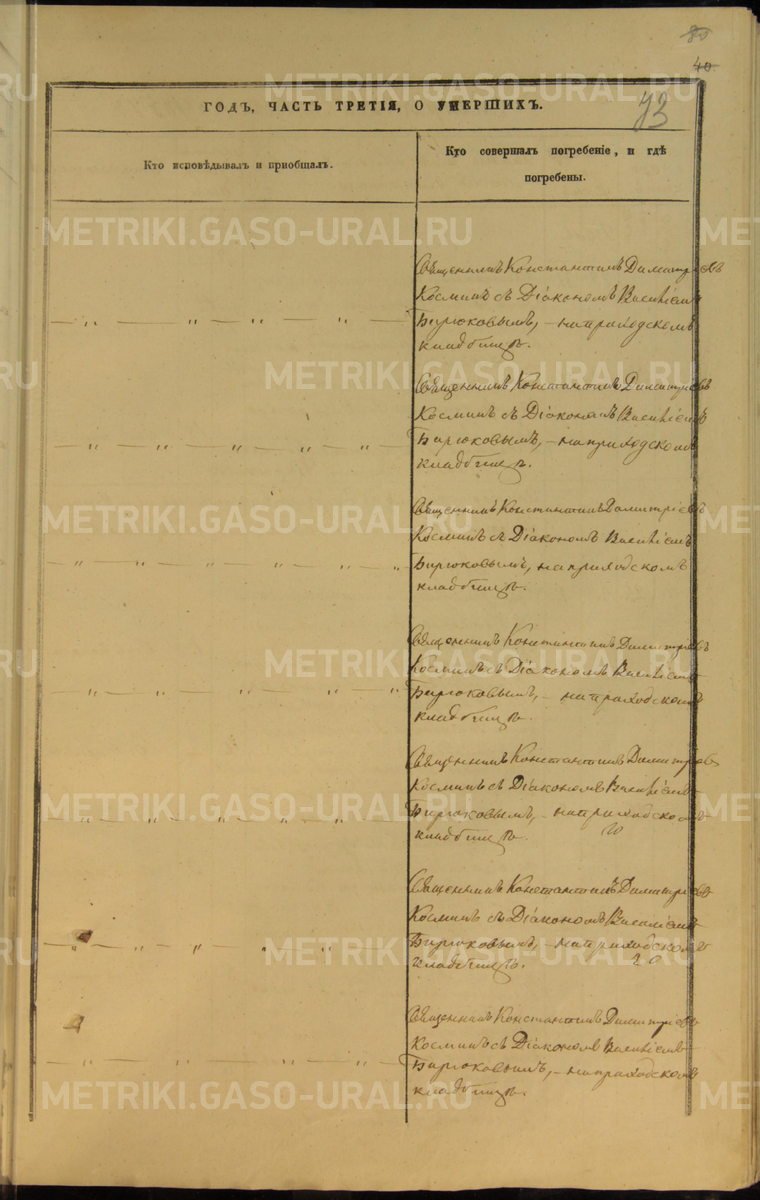 80
40.
73
ГОДЪ, ЧАСТЬ ТРЕТІЯ, О УМЕРШИХЪ.
Кто исповѣдывалъ и приобщалъ.
Кто совершалъ погребеніе, и гдѣ
погребены.
Священникъ Константинъ Димитріевъ
Косминъ съ Діакономъ Василіемъ
Бирюковымъ, – на приходскомъ
кладбищѣ.
Священникъ Константинъ Димитріевъ
Косминъ съ Діакономъ Василіемъ
Бирюковымъ, – на приходскомъ
кладбищѣ.
Священникъ Константинъ Димитріевъ
Косминъ съ Діакономъ Василіемъ
Бирюковымъ, на приходскомъ
кладбищѣ.
Священникъ Константинъ Димитріевъ
Косминъ съ Діакономъ Василіемъ
Бирюковымъ, – на приходскомъ
кладбищѣ.
Священникъ Константинъ Димитріевъ
Косминъ съ Діакономъ Василіемъ
Бирюковымъ, – на приходскомъ
кладбищѣ.
Священникъ Константинъ Димитріевъ
Косминъ съ Діакономъ Василіемъ
Бирюковымъ, – на приходскомъ
кладбищѣ.
Священникъ Константинъ Димитріевъ
Косминъ съ Діакономъ Василіемъ
Бирюковымъ, – на приходскомъ
кладбищѣ.
METRIKI.GASO-URAL.RU